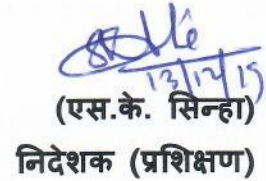 13/12/15
(एस.के. सिन्हा)
निदेशक (प्रशिक्षण)